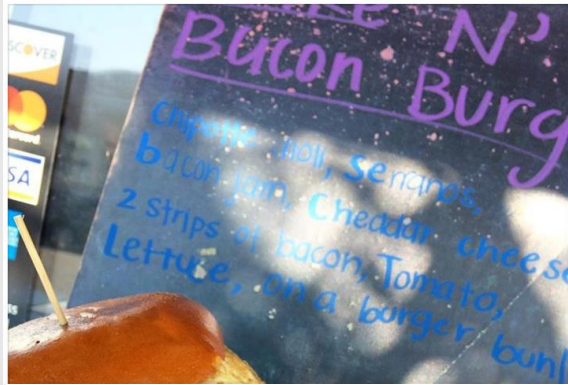 N'
Bacon Burg
Chipotle aioli, serranos,
bacon jam, Cheddar cheese
2 strips of bacon, Tomato,
Lettuce, on a burger bun!
SCOVER
VISA